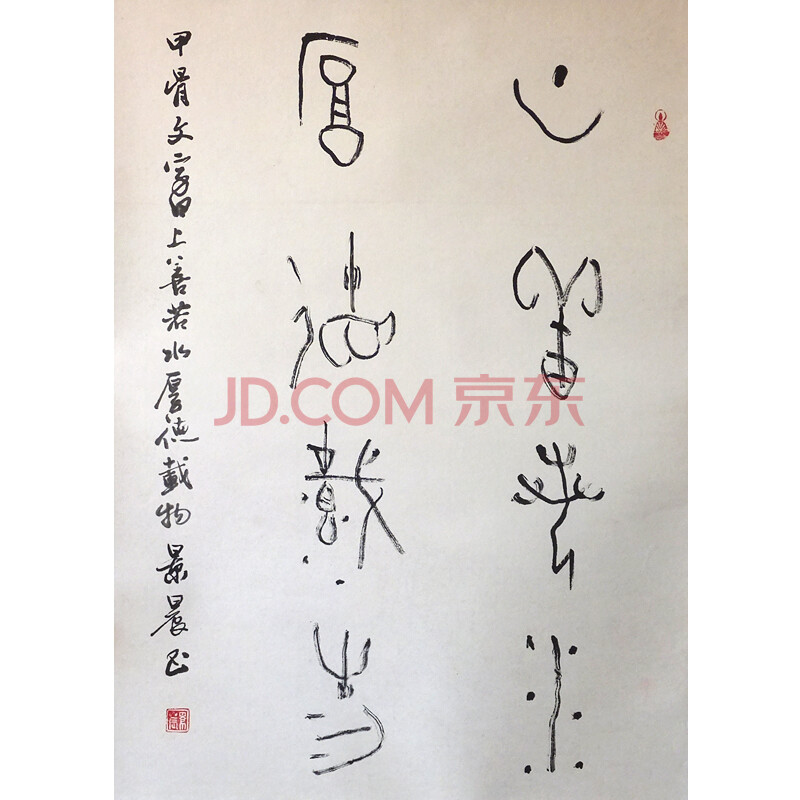 上善若水
厚德載物
甲骨文富日上善若水厚德載物 景晨书
JD.COM 京东